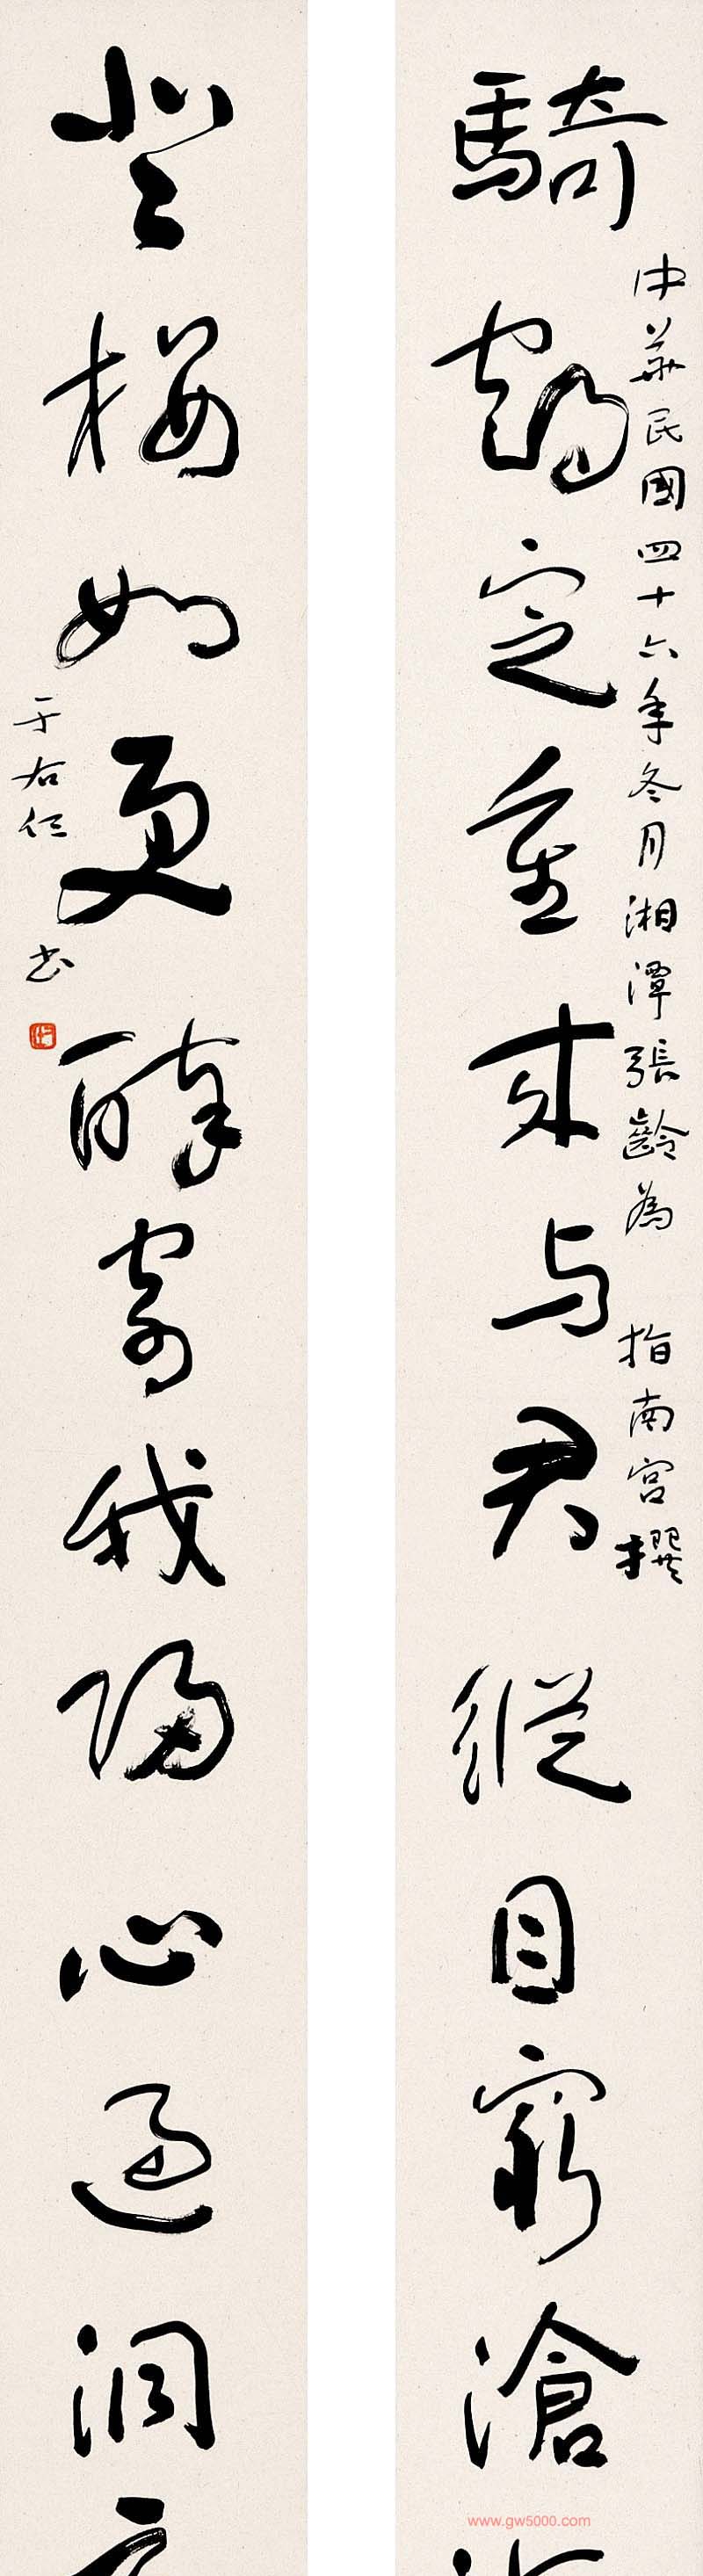 騎鶴定重來与君縱目窮滄
中華民國四十六年冬月湘潭張齡為指南宮撰
登樓如更醉寄我歸心過洞
于右任書
www.gw5000.com